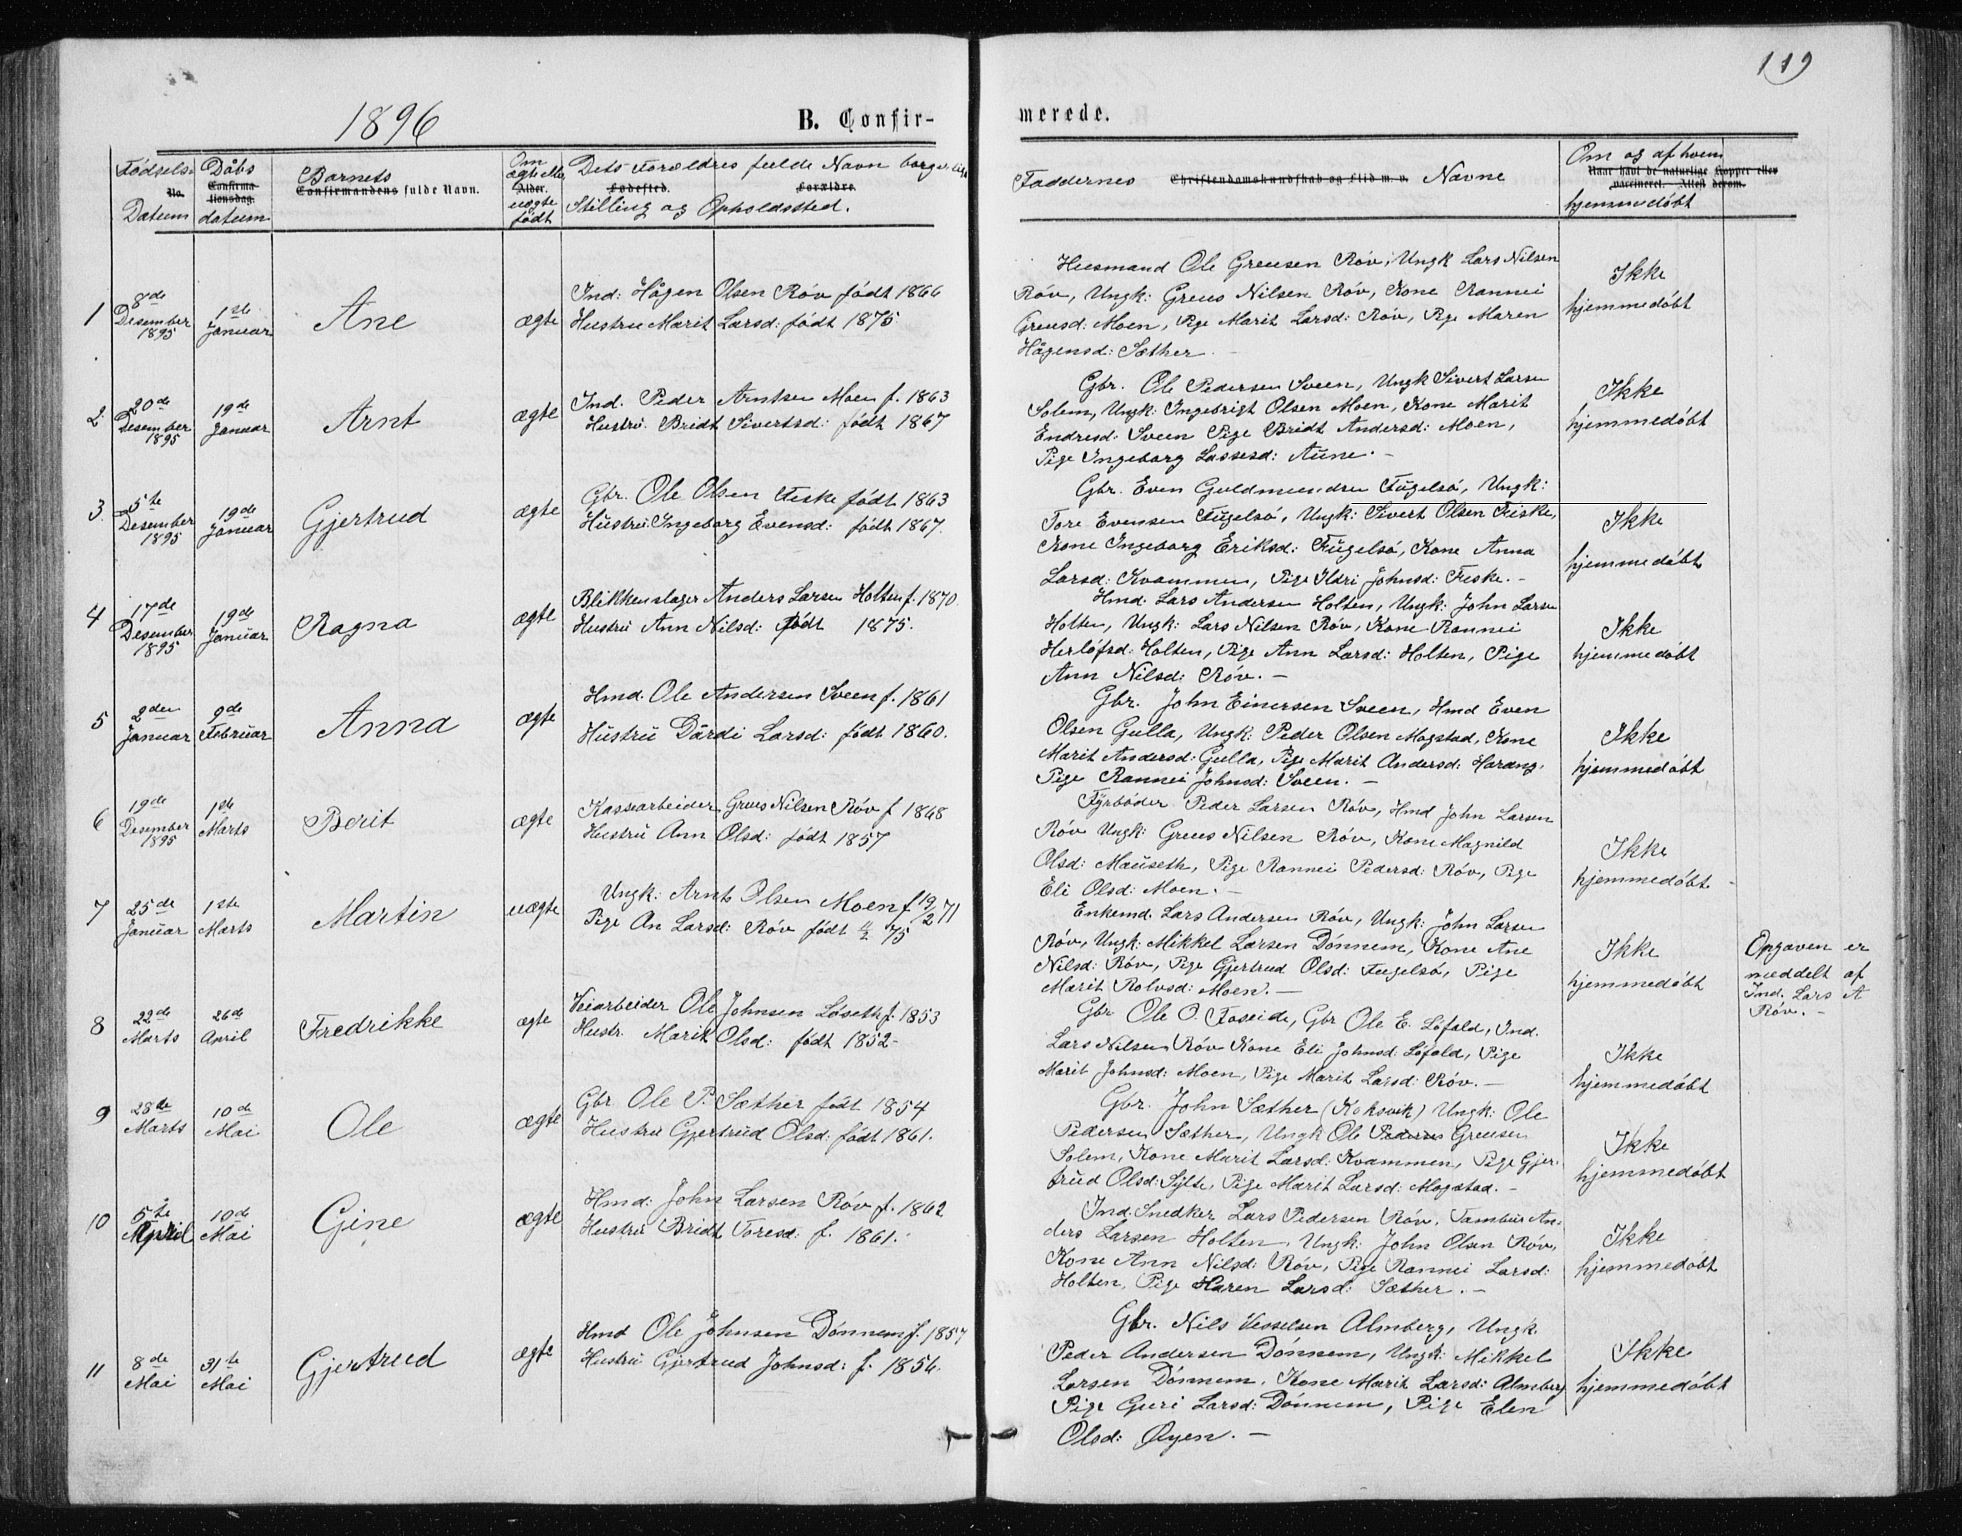 119
1896
B. Confir-
merede.
Fødsels
No.
Datum
Dåbs
Confirma-
tionsdag.
datum
Barnets
Confirmandens fulde Navn.
Om
ægte eller
Alder.
uægte
født
Dets Forældres fulde Navn borgerlige
Fødested. Forældre.
Stilling og Opholdssted.
Faddernes Christendomskundskab og Flid m. v. Navne
Om og af hvem
Naar havt de naturlige Kopper eller
vaccineret. Attest derom.
hjemmedøbt
1
8de
Desember
1895
1ste
Januar
Ane
ægte
Ind: Hågen Olsen Røv født 1866
Hustru Marit Larsd: født 1875
Husmand Ole Greusen Røv, Ungk Lars Nilsen
Røv, Ungk: Greus Nilsen Røv, Kone Rannei
Greusd: Moen, Pge Marit Larsd: Røv, Pge Maren
Hågensd: Sæther. -
Ikke
hjemmedøbt
2
20de
Desember
1895
19de
Januar
Arnt
ægte
Ind. Peder Arntsen Moen f. 1863
Hustru. Bridt Sivertsd: født 1867
Gbr. Ole Pedersen Sveen, Ungk Sivert Larsen
Solem, Ungk: Ingebrigt Olsen Moen, Kone Marit
Endresd: Sveen Pige Bridt Andersd: Moen,
Pige Ingeborg Lassesd: Aune. -
Ikke
hjemmedøbt
3.
5te
Desember
1895
19de
Januar
Gjertrud
ægte
Gbr. Ole Olsen Fiske født 1863
Hustru: Ingeborg Evensd: født 1867.
Gbr. Even Guldmundsen Fugelsø, Ungk:
Tore Evensen Fugelsø, Ungk: Sivert Olsen Fiske,
Kone Ingeborg Eriksd: Fugelsø, Kone Anna
Larsd: Kvammen, Pige Ildri Johnsd: Fiske. -
Ikke
hjemmedøbt
4
17de
Desember
1895
19de
Januar
Ragna
ægte
Blikkenslager Anders Larsen Holten f. 1870.
Hustru Ann Nilsd: født 1875.
Hmd. Lars Andersen Holten, Ungk: John Larsen
Holten, Ungk: Lars Nilsen Røv, Kone Rannei
Herløfsd: Holten, Pige Ann Larsd: Holten, Pige
Ann Nilsd: Røv. -
Ikke
hjemmedøbt
5
2den
Januar
9de
Februar
Anna
ægte
Hmd. Ole Andersen Sveen f. 1861
Hustru Dårdi Larsd: født 1860.
Gbr. John Einersen Sveen, Hmd Even
Olsen Gulla, Ungk: Peder Olsen Mogstad, Kone
Marit Andersd: Gulla, Pige Marit Andersd: Harang.
Pige Rannei Johnsd: Sveen. -
Ikke
hjemmedøbt
6
19de
Desember
1895
1ste
Marts
Berit
ægte
Kassearbeider Greus Nilsen Røv f 1868
Hustru Ann Olsd: født 1857
Fyrbøder Peder Larsen Røv, Hmd John Larsen
Røv Ungk: Greus Nilsen Røv, Kone Magnild
Olsd: Mauseth, Pige Rannei Pedersd: Røv, Pige
Eli Olsd: Moen. -
Ikke
hjemmedøbt
7
25de
Januar
1ste
Marts
Martin
uægte
Ungk: Arnt Olsen Moen f 19/2 71
Pige An Larsd: Røv født 75
Enkemd. Lars Andersen Røv, Ungk: John Larsen
Røv, Ungk: Mikkel Larsen Dønnem, Kone Ane
Nilsd: Røv, Pige Gjertrud Olsd: Fugelsø, Pige
Marit Rolvsd: Moen. -
Ikke
hjemmedøbt
Opgaven er
meddelt af
Ind. Lars A
Røv. -
8
22de
Marts
26de
April
Fredrikke
ægte
Veiarbeider Ole Johnsen Løseth f. 1853
Hustr. Marit Olsd: født 1852-
Gbr Ole O. Roseide, Gbr Ole E. Løfald, Ind.
Lars Nilsen Røv Kone Eli Johnsd: Løfald, Pige
Marit Johnsd: Moen, Pige Marit Larsd: Røv. -
Ikke
hjemmedøbt
9
28de
Marts
10de
Mai
Ole
ægte
Gbr Ole P. Sæther født 1854
Hustru Gjertrud Olsd: født 1861.
Gbr. John Sæther (Kaksvik) Ungk: Ole
Pedersen Sæther, Ungk Ole Pedersen Greusen
Solem, Kone Marit Larsd: Kvammen, Pige Gjer-
trud Olsd: Sylte, Pige Marit Larsd: Mogstad. -
Ikke
hjemmedøbt
10
5te
April
10de
Mai
Gine
ægte
Hmd: John Larsen Røv f. 1862
Hustru Bridt Toresd: f. 1861.
Ind. Snedker Lars Pedersen Røv, Tambur An-
ders Larsen Holten, Ungk: John Olsen Røv,
Kone Ann Nilsd: Røv, Pige Rannei Larsd:
Holten, Pige Karen Larsd: Sæther. -
Ikke
hjemmedøbt
11
8de
Mai
31te
Mai
Gjertrud
ægte
Hmd Ole Johnsen Dønnem f. 1857
Hustru Gjertrud Johnsd: f. 1856.
Gbr. Nils Vesselsen Almberg, Ungk.
Peder Andersen Dønnem, Ungk: Mikkel
Larsen Dønnem, Kone Marit Larsd: Almberg
Pige Guri Larsd: Dønnem, Pige Elen
Olsd: Øyen. -
Ikke
hjemmedøbt